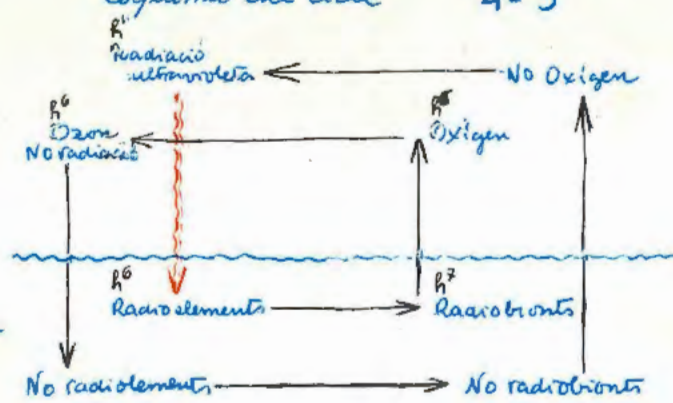 h¹
Radiació
ultravioleta
No Oxígen
h⁶
Ozon
No radiació
h⁸
Oxígen
h⁶
Radioelements
h⁷
Radiobionts
No radiolements
No radiobionts